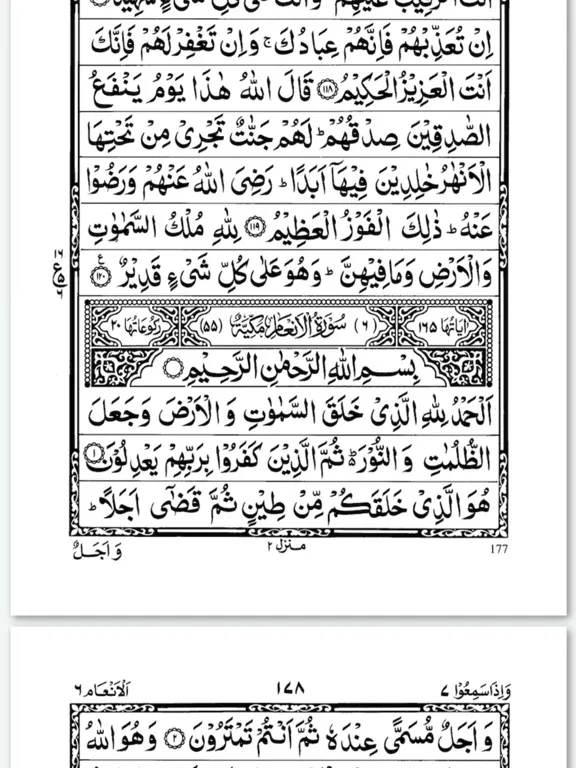 اِنْ تُعَذِّبْهُمْ فَاِنَّهُمْ عِبَادُكَ ۚ وَاِنْ تَغْفِرْ لَهُمْ فَاِنَّكَ
اَنْتَ الْعَزِيْزُ الْحَكِيْمُ ﴿۱۱۸﴾ قَالَ اللّٰهُ هٰذَا يَوْمُ يَنْفَعُ
الصّٰدِقِيْنَ صِدْقُهُمْ ؕ لَهُمْ جَنّٰتٌ تَجْرِىْ مِنْ تَحْتِهَا
الْاَنْهٰرُ خٰلِدِيْنَ فِيْهَاۤ اَبَدًا ؕ رَضِىَ اللّٰهُ عَنْهُمْ وَرَضُوْا
عَنْهُ ؕ ذٰلِكَ الْفَوْزُ الْعَظِيْمُ ﴿۱۱۹﴾ لِلّٰهِ مُلْكُ السَّمٰوٰتِ
وَالْاَرْضِ وَمَا فِيْهِنَّ ؕ وَهُوَ عَلٰى كُلِّ شَىْءٍ قَدِيْرٌ ﴿۱۲۰﴾
اٰيَاتُهَا ۱۶۵ (۶) سُوْرَةُ الْاَنْعَامِ مَكِّيَّةٌ (۵۵) رُكُوْعَاتُهَا ۲۰
بِسْمِ اللّٰهِ الرَّحْمٰنِ الرَّحِيْمِ
اَلْحَمْدُ لِلّٰهِ الَّذِىْ خَلَقَ السَّمٰوٰتِ وَ الْاَرْضَ وَجَعَلَ
الظُّلُمٰتِ وَ النُّوْرَ ؕ ثُمَّ الَّذِيْنَ كَفَرُوْا بِرَبِّهِمْ يَعْدِلُوْنَ ﴿۱﴾
هُوَ الَّذِىْ خَلَقَكُمْ مِّنْ طِيْنٍ ثُمَّ قَضٰۤى اَجَلًا ؕ
وَ اَجَلٌ
منزل ۲
177
وَاِذَا سَمِعُوْا ۷
۱۷۸
اَلْاَنْعَام ۶
وَ اَجَلٌ مُّسَمًّى عِنْدَهٗ ثُمَّ اَنْتُمْ تَمْتَرُوْنَ ﴿۲﴾ وَ هُوَ اللّٰهُ